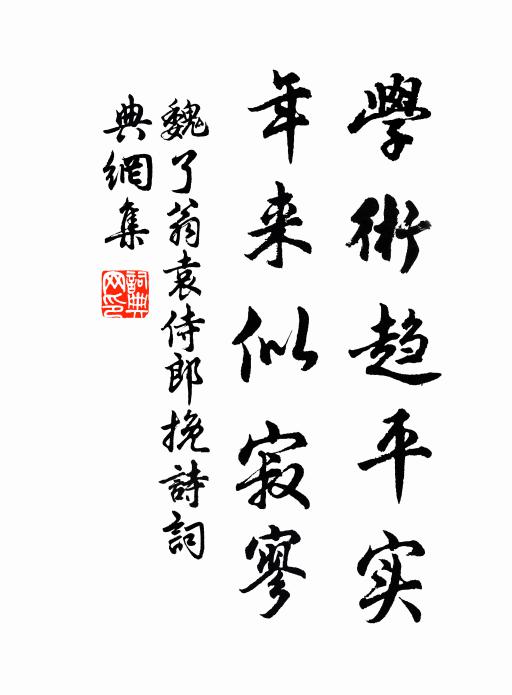 學術趋平实
年来似寂寥
魏了翁袁侍郎挽詩詞
典網集
詞典
网印